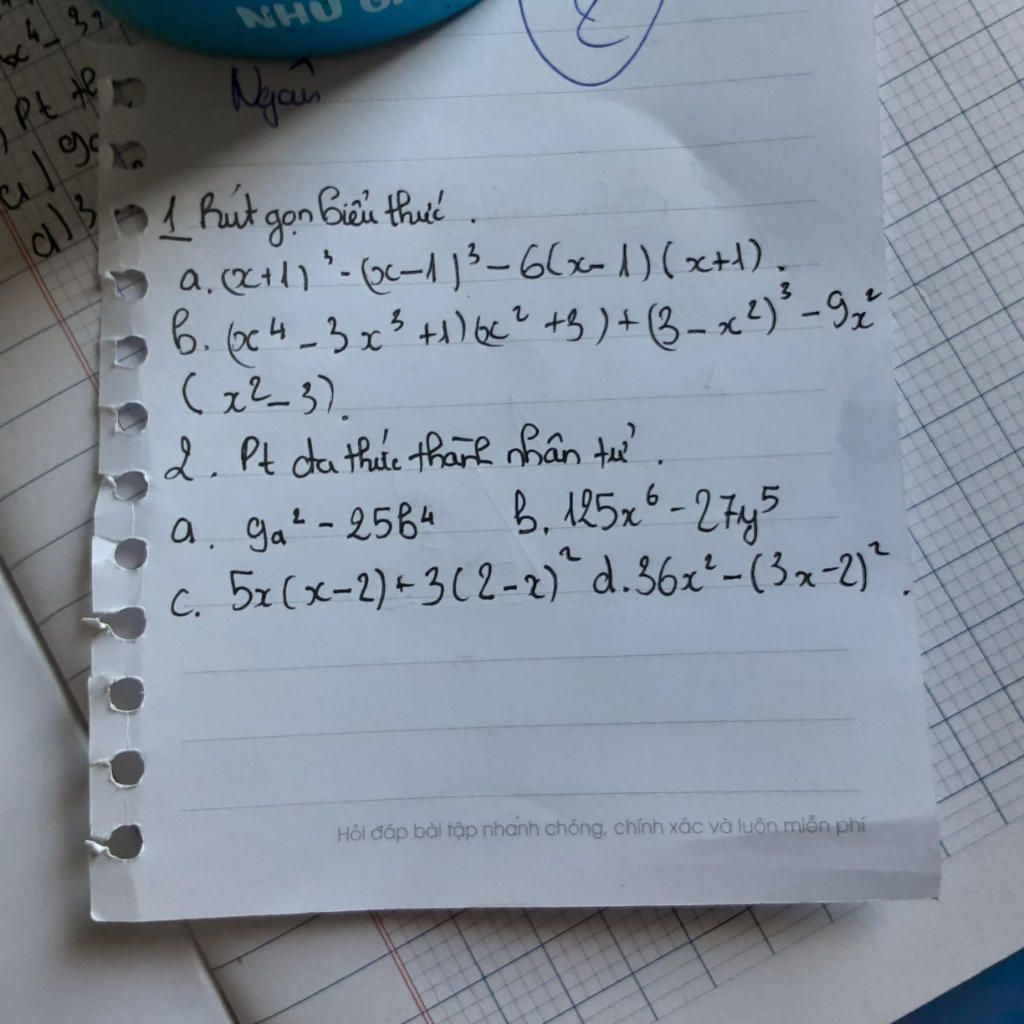 NHƯ
x⁴ - 3
Pt th
Ngân
1 Rút gọn biểu thức .
a. (x+1)³ - (x-1)³ - 6(x-1)(x+1) .
b. (x⁴ - 3x³ +1)(x² +3) + (3 - x²)³ - 9x²
(x² - 3).
2. Pt đa thức thành nhân tử .
a. 9a² - 25b⁴ b. 125x⁶ - 27y⁵
c. 5x(x-2) + 3(2-x)² d. 36x² - (3x-2)² .
Hỏi đáp bài tập nhanh chóng, chính xác và luôn miễn phí